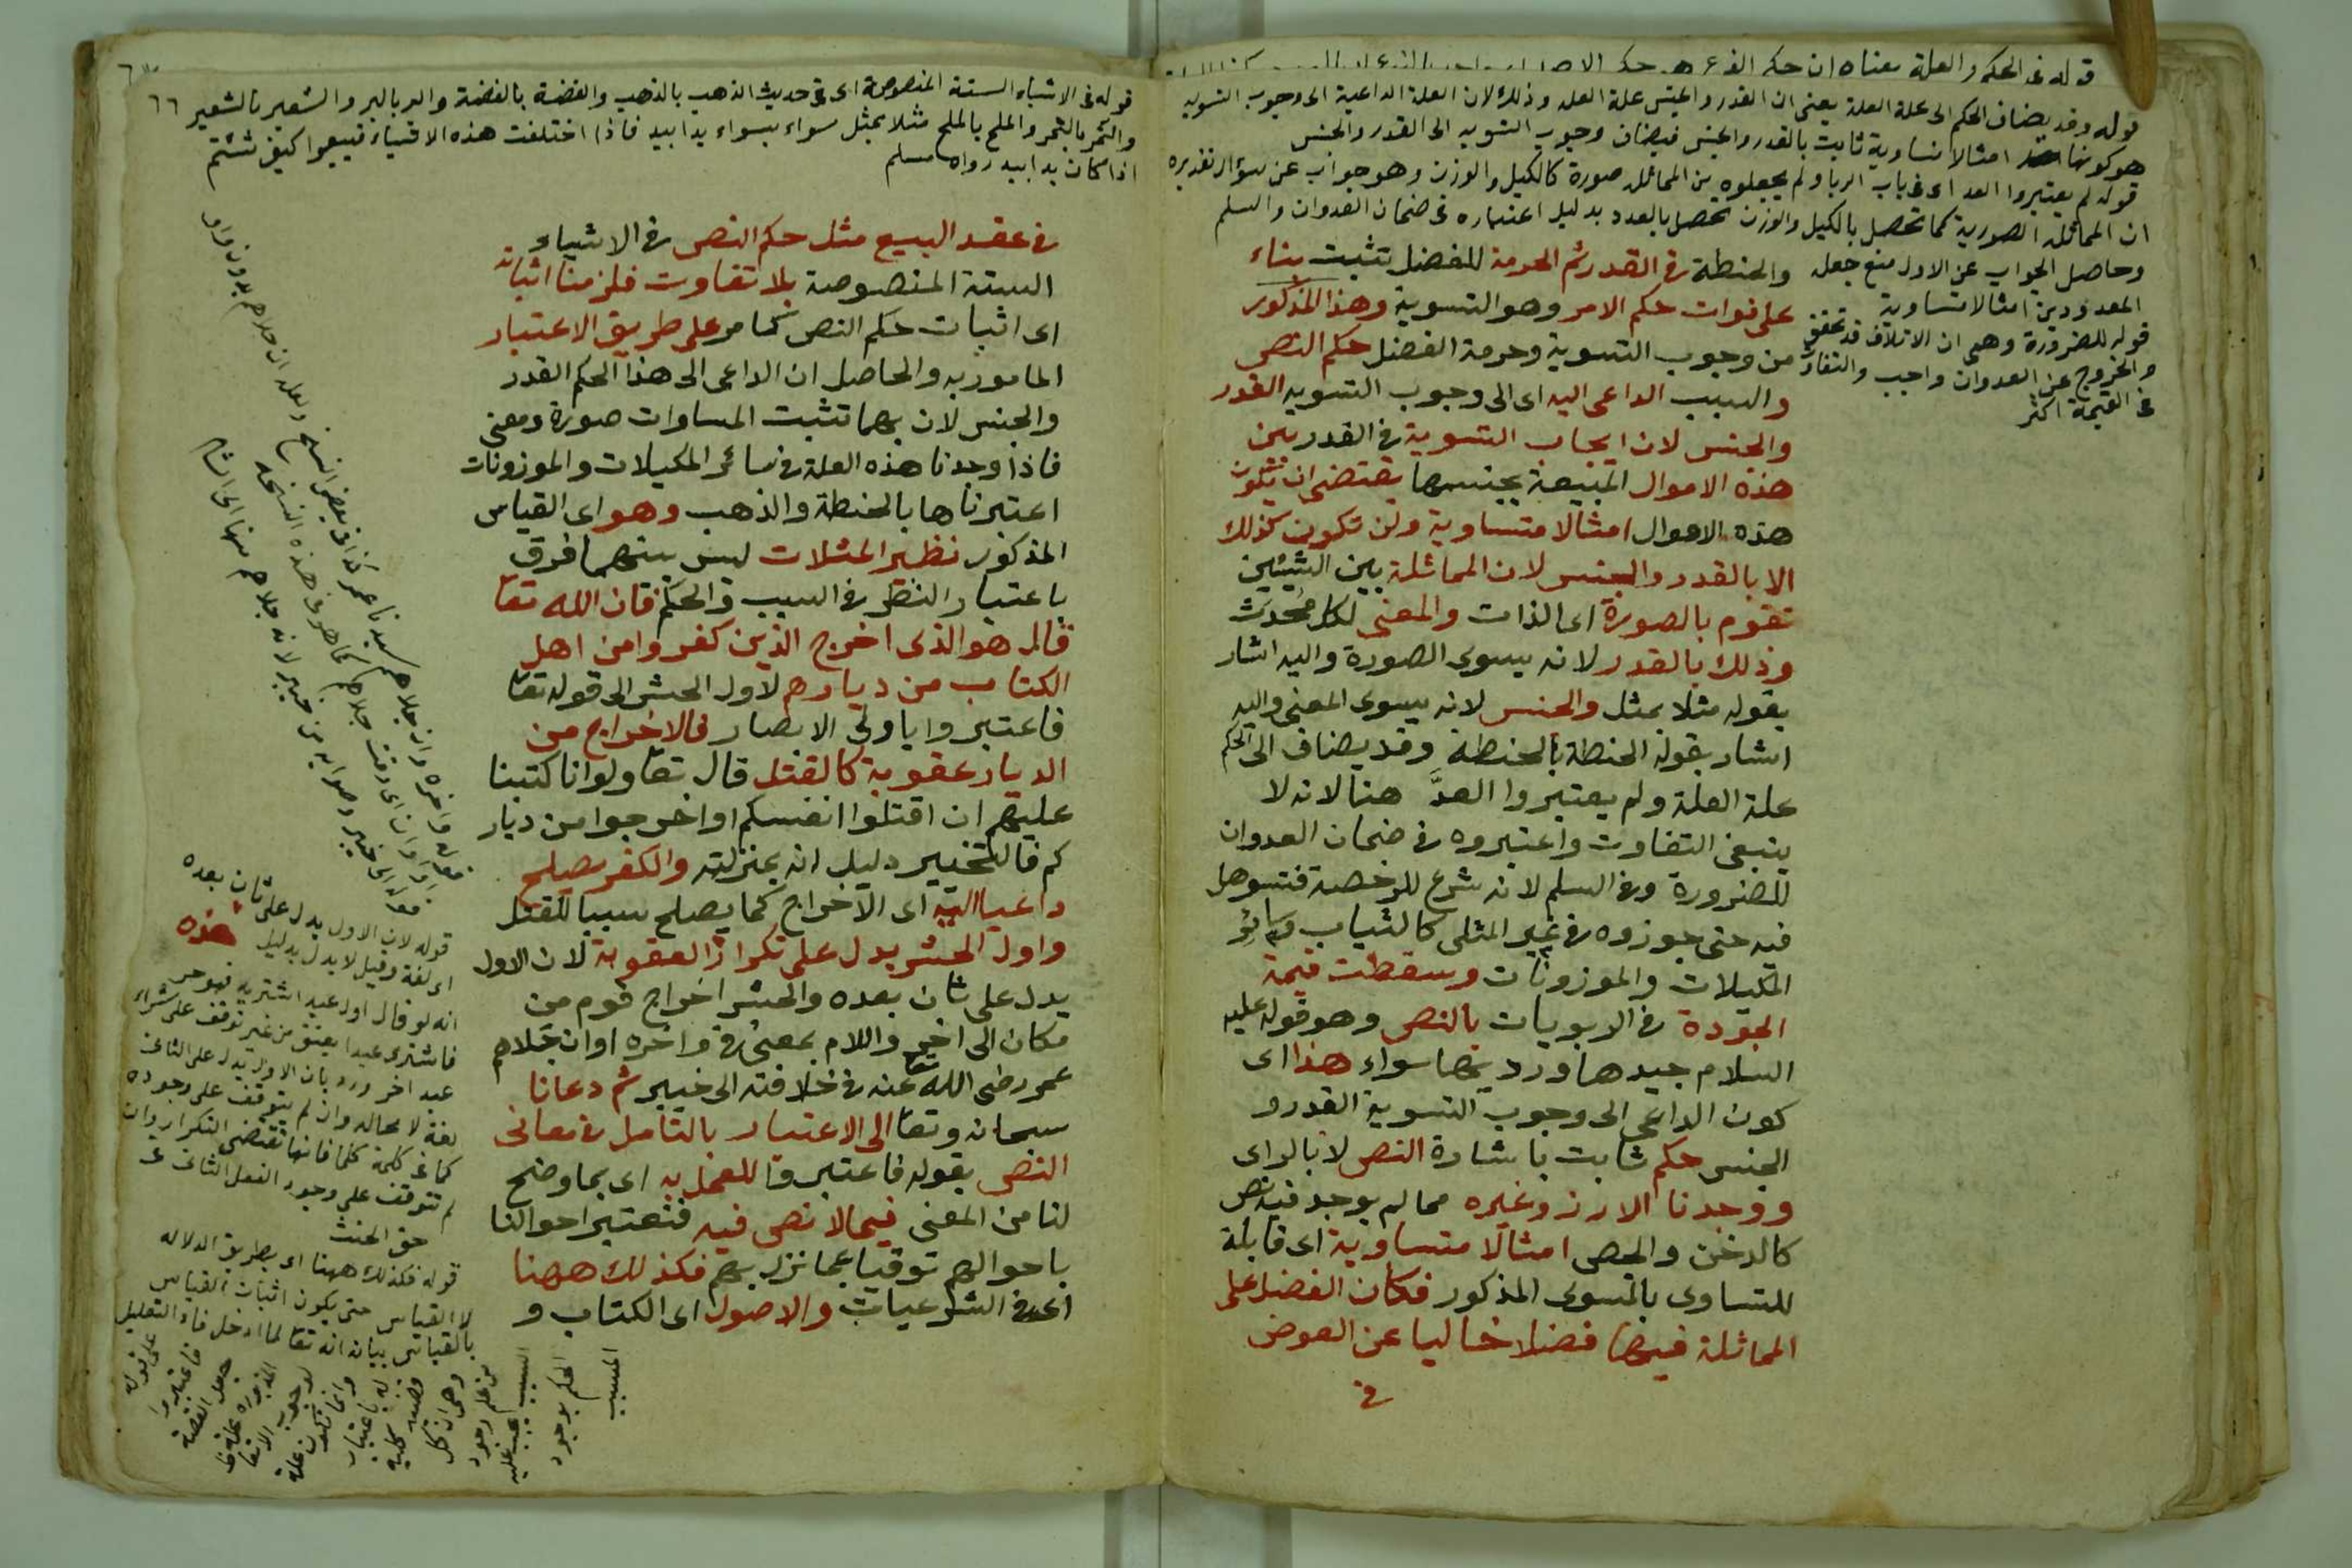 قوله فى الحكم والعلة معناه ان حكم الفرع هو حكم الاصل
قوله وقد يضاف الحكم الى علة العلة يعنى ان القدر والجنس علة العلة وذلك لان العلة الداعية الى وجوب التسوية
هو كونها امثالا متساوية ثابت بالقدر والجنس فيضاف وجوب التسوية الى القدر والجنس
قوله لم يعتبروا العد اى فى باب الربا ولم يجعلوه من المماثلة صورة كالكيل والوزن وهو جواب عن سؤال تقديره
ان المماثلة الصورية كما تحصل بالكيل والوزن تحصل بالعدد بدليل اعتباره فى ضمان العدوان والسلم
وحاصل الجواب عن الاول منع جعل
المعدودين امثالا متساوية
قوله للضرورة وهى ان الاتلاف قد تحقق
والخروج عن العدوان واجب والتفاوت
فى القيمة اكثر
والحنطة فى القدر ثم الحرمة للفضل تثبت بناء
على فوات حكم الامر وهو التسوية وهذا المذكور
من وجوب التسوية وحرمة الفضل حكم النص
والسبب الداعى اليه اى الى وجوب التسوية القدر
والجنس لان ايجاب التسوية فى القدر بين
هذه الاموال المبيعة بجنسها يقتضى ان تكون
هذه الاموال امثالا متساوية ولن تكون كذلك
الا بالقدر والجنس لان المماثلة بين الشيئين
تقوم بالصورة اى الذات والمعنى لكل محدث
وذلك بالقدر لانه يسوى الصورة واليه اشار
بقوله مثلا بمثل والجنس لانه يسوى المعنى واليه
اشار بقوله الحنطة بالحنطة وقد يضاف الحكم الى
علة العلة ولم يعتبروا العدَّ هنا لانه لا
ينبغى التفاوت واعتبروه فى ضمان العدوان
للضرورة وفى السلم لانه شرع للرخصة فتسوهل
فيه حتى جوزوه فى غير المثلى كالثياب وسائر
المكيلات والموزونات وسقطت قيمة
الجودة فى الربويات بالنص وهو قوله عليه
السلام جيدها ورديها سواء هذا اى
كون الداعى الى وجوب التسوية القدر و
الجنس حكم ثابت باشارة النص لا بالراى
ووجدنا الارز وغيره مما لم يوجد فيه نص
كالدخن والجص امثالا متساوية اى قابلة
للتساوى بالمسوى المذكور فكان الفضل على
المماثلة فيها فضلا خاليا عن العوض
فى
٦٦
قوله فى الاشياء الستة المنصوصة اى فى حديث الذهب بالذهب والفضة بالفضة والبر بالبر والشعير بالشعير
والتمر بالتمر والملح بالملح مثلا بمثل سواء بسواء يدا بيد فاذا اختلفت هذه الاشياء فبيعوا كيف شئتم
اذا كان يدا بيد رواه مسلم
فى عقد البيع مثل حكم النص فى الاشياء
الستة المنصوصة بلا تفاوت فلزمنا اثباته
اى اثبات حكم النص كما مر على طريق الاعتبار
المامور به والحاصل ان الداعى الى هذا الحكم القدر
والجنس لان بهما تثبت المساوات صورة ومعنى
فاذا وجدنا هذه العلة فى سائر المكيلات والموزونات
اعتبرناها بالحنطة والذهب وهو اى القياس
المذكور نظير المثلات ليس بينهما فرق
باعتبار النظر فى السبب والحكم فان الله تعا
قال هو الذى اخرج الذين كفروا من اهل
الكتاب من ديارهم لاول الحشر الى قوله تعا
فاعتبروا ياولى الابصار فالاخراج من
الديار عقوبة كالقتل قال تعا ولو انا كتبنا
عليهم ان اقتلوا انفسكم او اخرجوا من ديار
كم فالتخيير دليل انه بمنزلته والكفر يصلح
داعيا اليه اى الاخراج كما يصلح سببا للقتل
واول الحشر يدل على تكرار العقوبة لان الاول
يدل على ثان بعده والحشر اخراج قوم من
مكان الى اخر واللام بمعنى فى واخره اوان جلاهم
عمر رضى الله تعا عنه فى خلافته الى خيبر ثم دعانا
سبحانه وتعا الى الاعتبار بالتامل فى معانى
النص بقوله فاعتبروا للعمل به اى بما وضح
لنا من المعنى فيما لا نص فيه فنعتبر احوالنا
باحوالهم توقيا عما نزل بهم فكذلك ههنا
اى فى الشرعيات والاصول اى الكتاب و
قوله لان الاول يدل على ثان بعده
اى لغة وقيل لا يدل بدليل
انه لو قال اول عبد اشتريه فهو حر
فاشترى عبدا يعتق من غير توقف على شراء
عبد اخر ورد بان الاول يدل على الثانى
لغة لا محالة وان لم يتوقف على وجوده
كما فى كلمة كلما فانها تقتضى التكرار وان
لم تتوقف على وجود الفعل الثانى فى
حق الحنث
قوله فكذلك ههنا اى بطريق الدلالة
لا القياس حتى يكون اثبات القياس
بالقياس بيانه انه تعا لما ادخل فاء التعليل
على قوله
فاعتبروا
جعل القصة